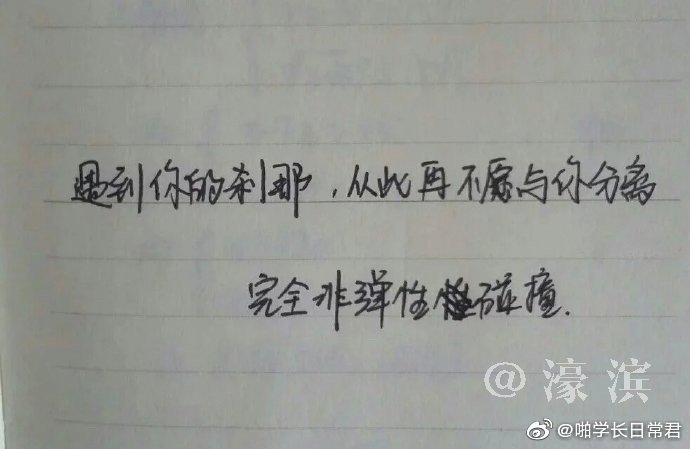 遇到你的刹那，从此再不愿与你分离
完全非弹性碰撞.
@濠滨
@啪学长日常君